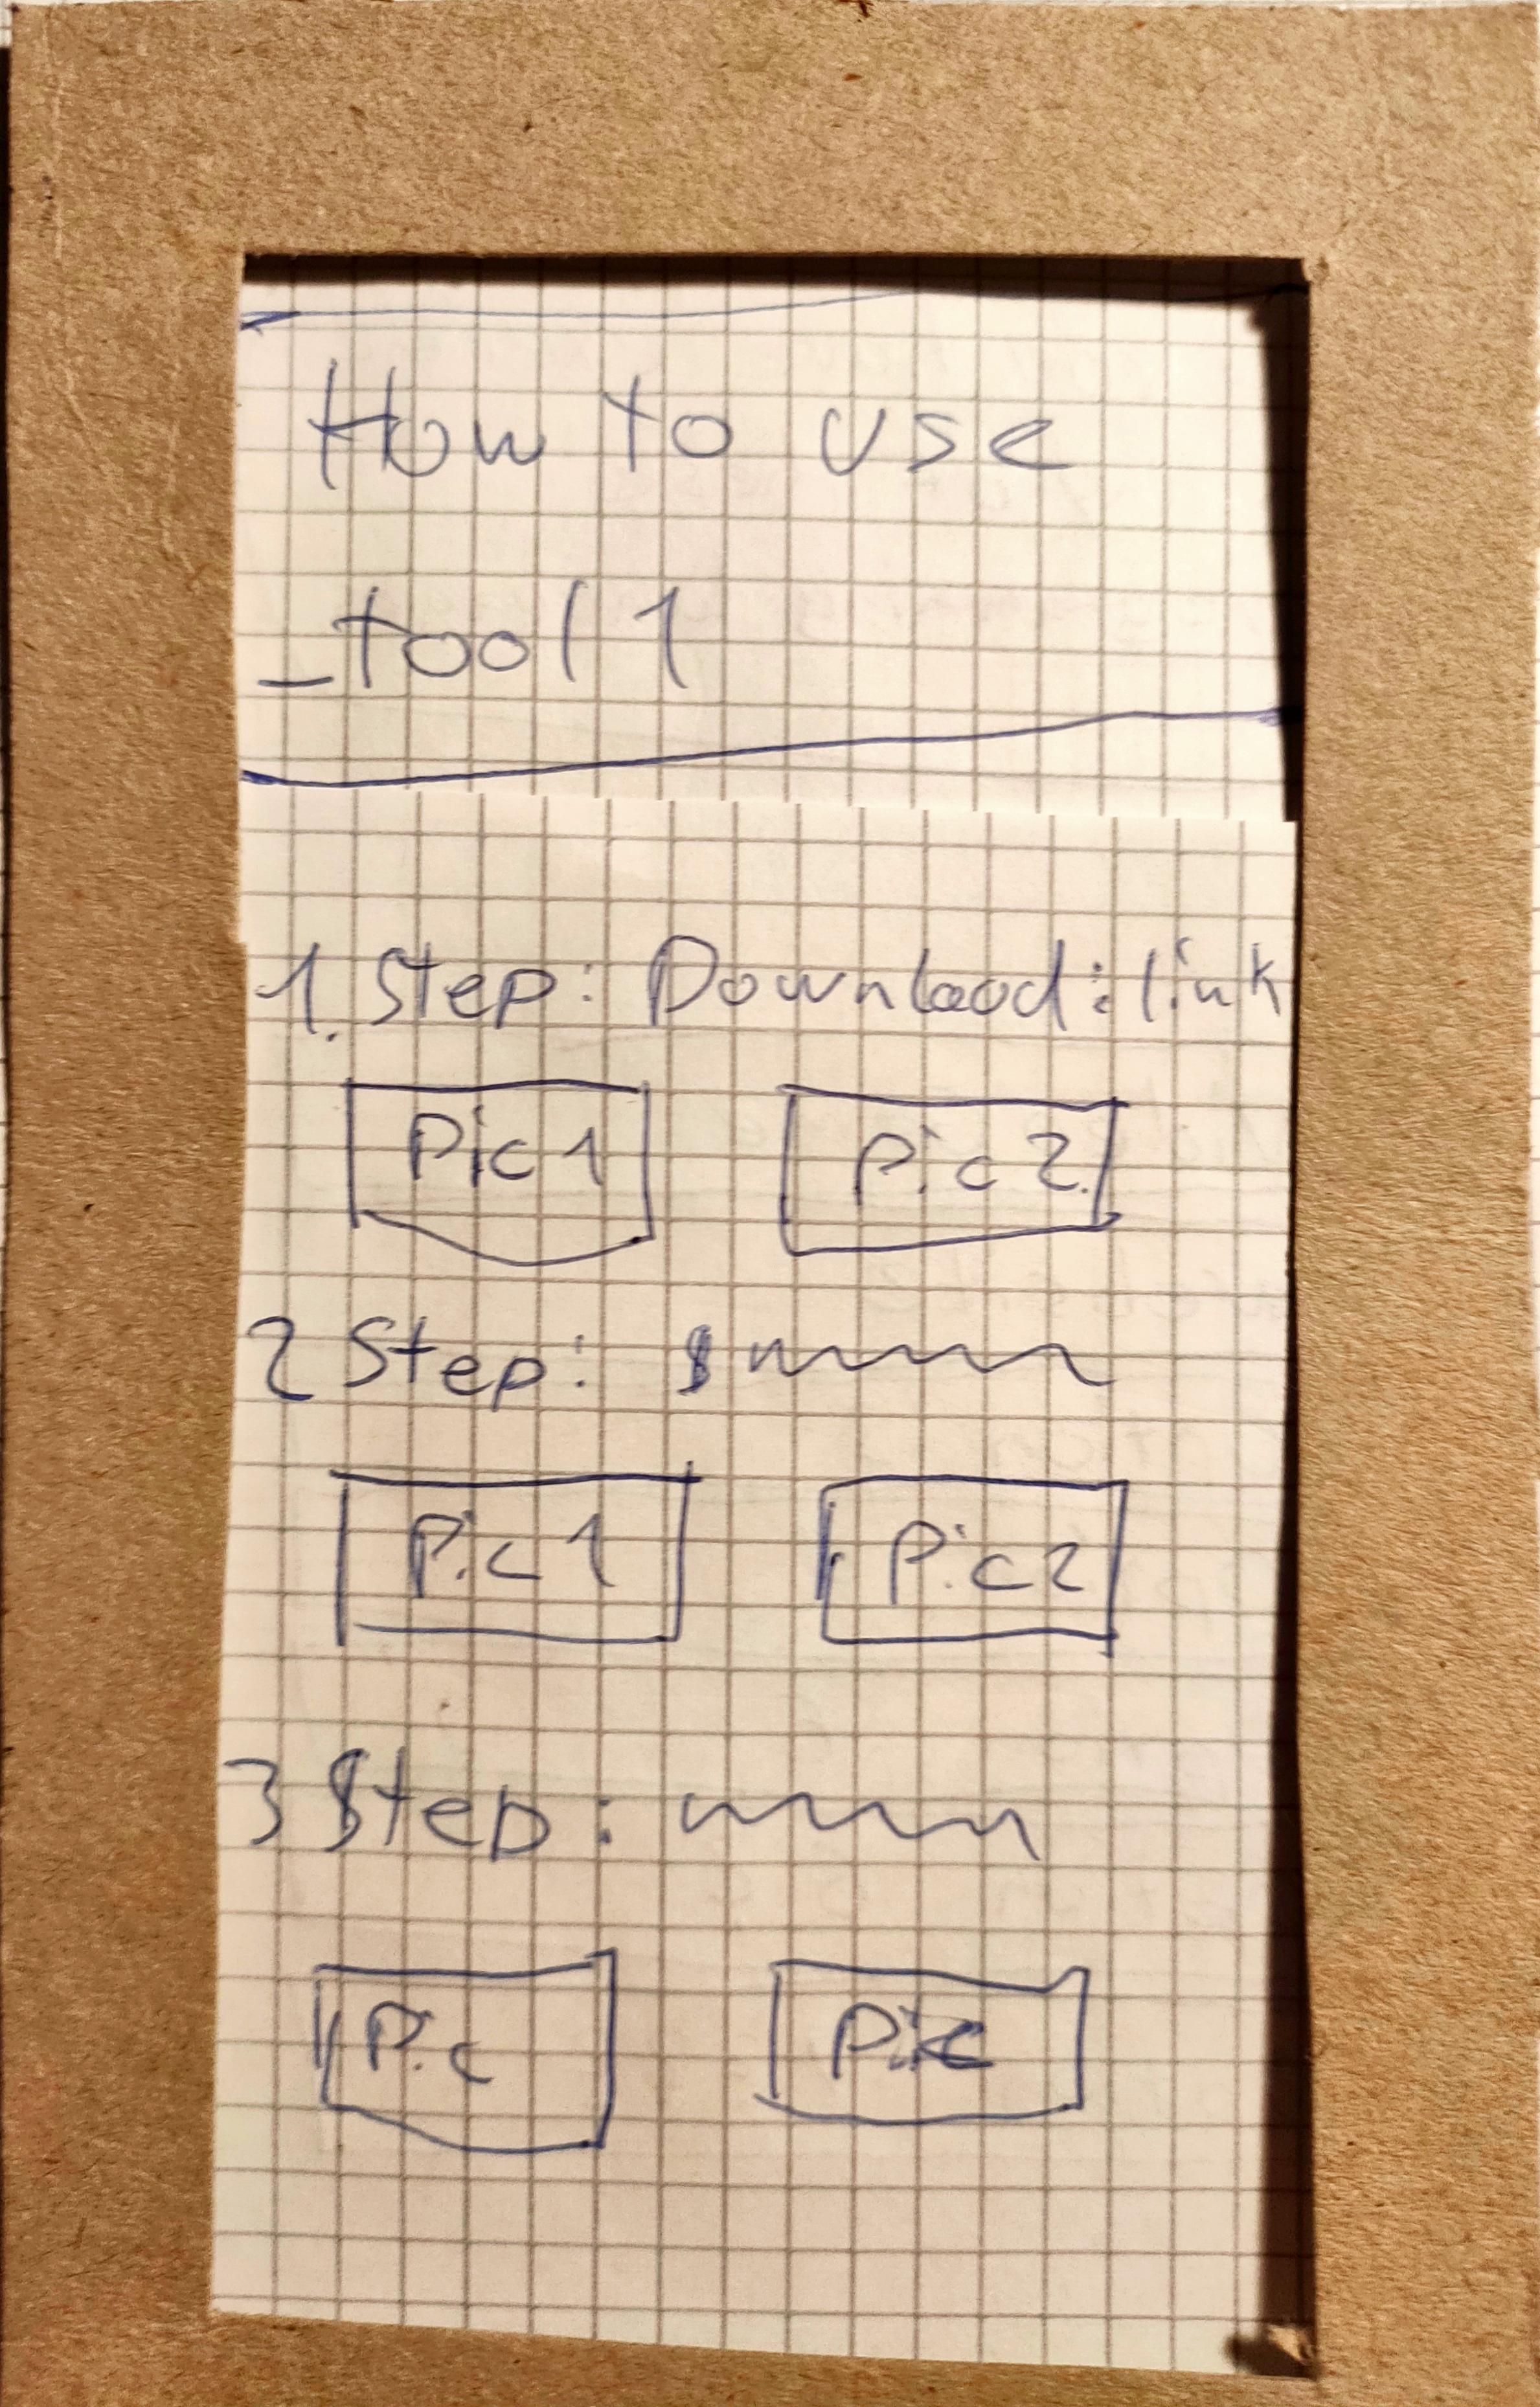 How to use
_tool 1
1. Step: Download: link
Pic 1 Pic 2
2 Step:
Pic 1 Pic 2
3 Step:
Pic Pic